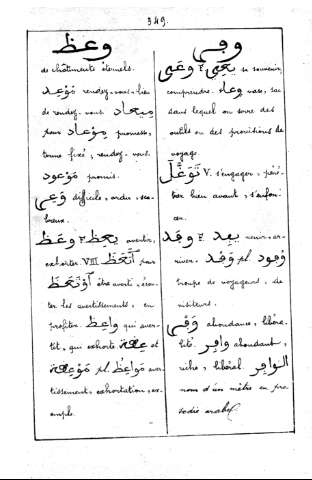 349.
وعظ
de châtiments éternels.
مَوْعِد rendez-vous, lieu
de rendez-vous مِيعاد
pour مِوْعاد promesse,
terme fixé, rendez-vous.
مَوْعود promis.
وَعِر difficile, ardu, sca-
breux.
وعَظ َ يعِظ avertir,
exhorter. VIII اِتَّعَظ pour
اِوْتَعَظَ être averti, écou-
ter les avertissements, en
profiter. واعِظ qui aver-
tit, qui exhorte عِظة et
مَوْعِظة pl. مَواعِظ aver-
tissement, exhortation, ex-
emple.
وفر
وعَى يَعِي se souvenir,
comprendre. وِعاء vase, sac
dans lequel on serre des
outils ou des provisions de
voyage.
تَوَغَّلَ V. s'engager, péné-
trer bien avant, s'enfon-
cer.
وفَد يفِد venir, ar-
river. وَفْد pl. وُفود
troupe de voyageurs, de
visiteurs.
وَفْر abondance, libéra-
lité. وافِر abondant,
riche, libéral. الوافِر
nom d'un mètre en pro-
sodie arabe.